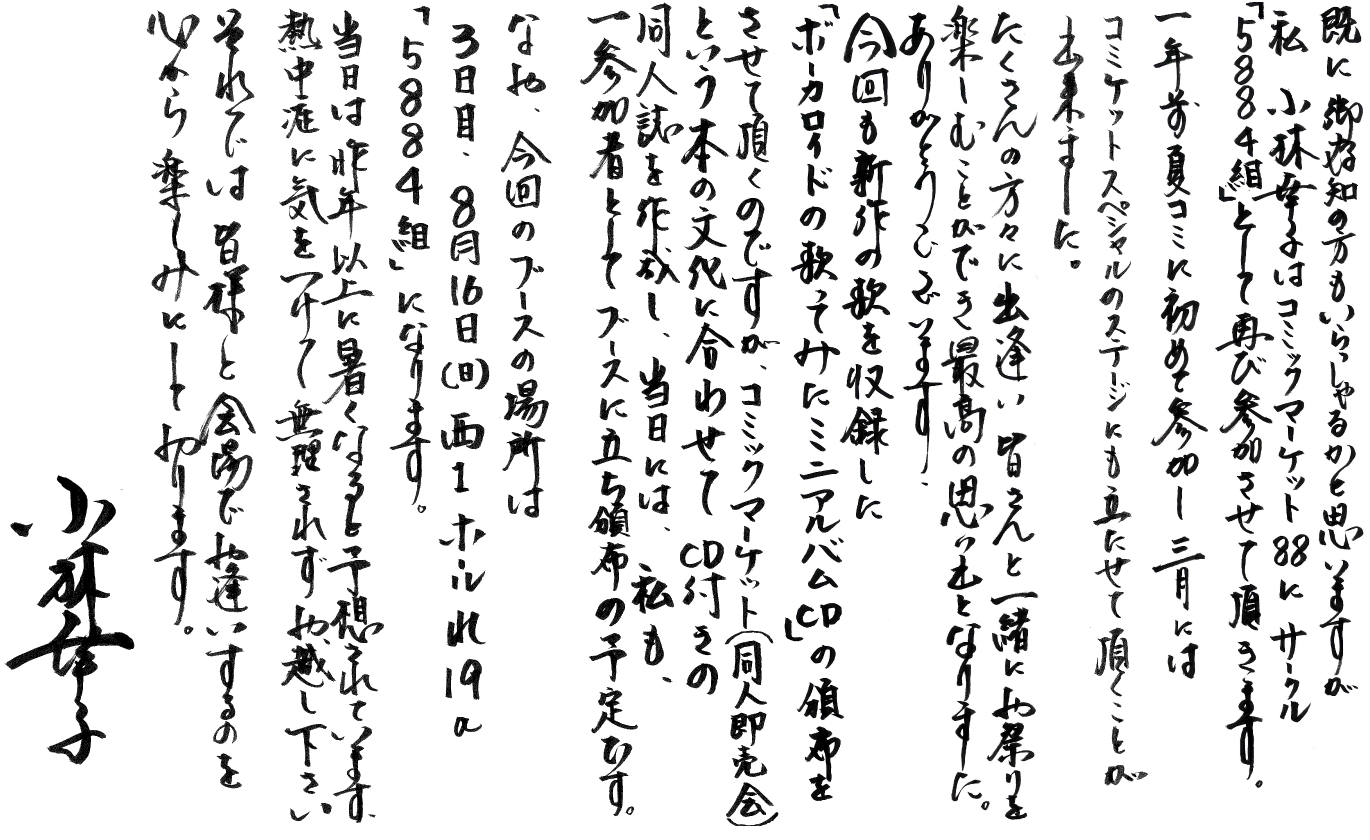 既に御存知の方もいらっしゃるかと思いますが
私 小林幸子はコミックマーケット88にサークル
「5884組」として再び参加させて頂きます。
一年前夏コミに初めて参加し 三月には
コミケットスペシャルのステージにも立たせて頂くことが
出来ました。
たくさんの方々に出逢い皆さんと一緒にお祭りを
楽しむことができ最高の思い出となりました。
ありがとうございます。
今回も新作の歌を収録した
「ボーカロイドの歌ってみたミニアルバムCD」の頒布を
させて頂くのですが、コミックマーケット(同人即売会)
という本の文化に合わせて CD付きの
同人誌を作成し、当日には、私も、
一参加者としてブースに立ち頒布の予定です。
なお、今回のブースの場所は
3日目、8月16日(日)西1ホールれ19a
「5884組」になります。
当日は昨年以上に暑くなると予想されています。
熱中症に気をつけて 無理されずお越し下さい。
それでは皆様と会場でお逢いするのを
心から楽しみにしております。
小林幸子